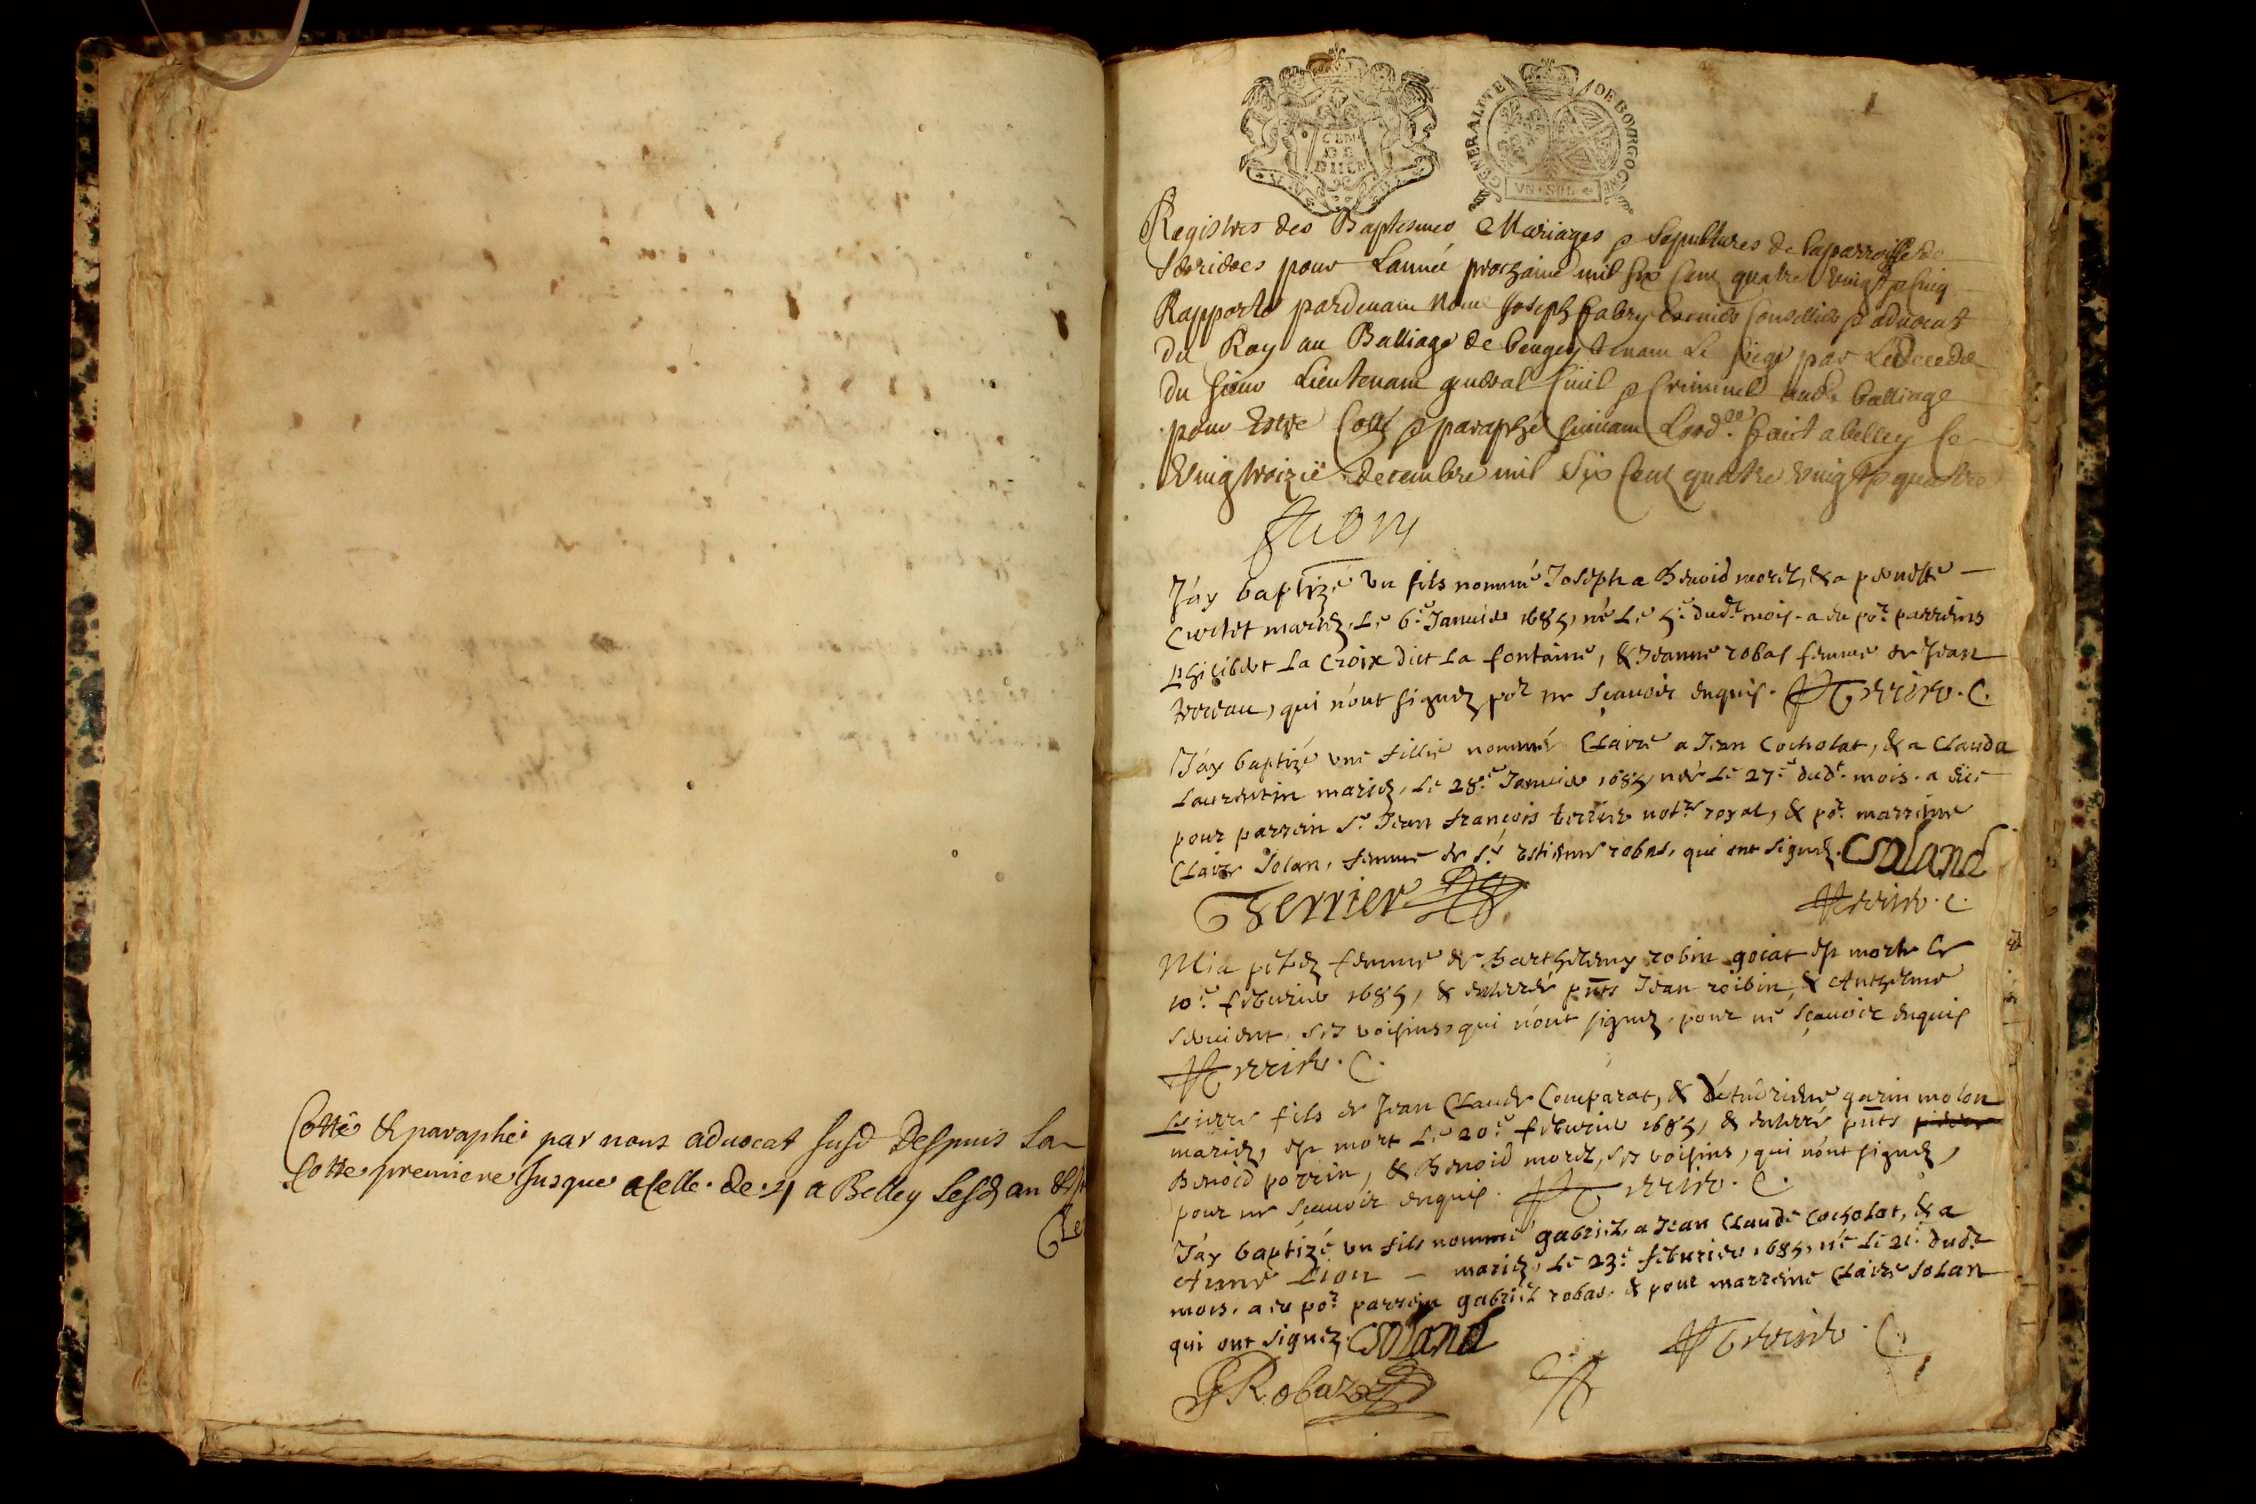 Cotté & paraphé par nous advocat susd Despuis la
Cotte premiere Jusque a Celle de 21 a Belley Lesd an &
GENERALITE DE BOVRGOGNE
VN SOL
1
Registres des Baptesmes Mariages & Sepultures de la parroisse de
pour Lannée prochaine mil six Cent quatre vingt & Cinq
Rapporté pardevant Nous Joseph Fabry Conseiller & advocat
du Roy au Balliage de beugey tenant Le siege par Le deceds
du sieur Lieutenant general Civil & Criminel aud. balliage
pour Estre Cotté & paraphé suivant Lord.ce fait a belley Ce
Vingtroizie decembre mil Six Cent quatre vingt & quatre
J'ay baptizé vn fils nommé Joseph a Benoid morel, & a pernette
Curtet mariez, Le 6.e Januier 1685, né Le 5.e dud.t mois. a eu po.r parreins
Philibert La Croix dict La fontaine, & Jeanne robas femme de Jean
terreau, qui n'ont signez po.r ne sçauoir enquis. Terrier. C.
J'ay baptizé vne fillie nommé Claire a Jean Cocholat, & a Clauda
Laurentin mariez, Le 28.e Januier 1685, née Le 27.e dud.t mois. a eüe
pour parrein S.r Jean françois terrier not.re royal, & po.r marreine
Claire Solan, femme de S.r estienne robas, qui ont signez. CSoland
Terrier
Terrier. C.
Mia femme de Barthelemy robin gojat est morte Le
10.e februier 1685, & enterrée pnts Jean robin, & Anthelme
seruient, ses voisins, qui n'ont signez, pour ne sçauoir enquis
Terrier. C.
Pierre fils de Jean Claude Comparat, & d'Estiennne garin molon
mariez, est mort Le 20.e februier 1685, & enterré pnts
Benoid perrin, & Benoid morel, ses voisins, qui n'ont signez,
pour ne sçauoir enquis. Terrier. C.
J'ay baptizé vn fils nommé gabriel, a Jean Claude Cocholat, & a
Anne Lion – mariez, Le 23.e februier 1685, né Le 21.e dud.t
mois. a eu po.r parrein gabriel robas. & pour marreine Claire Solan
qui ont signez. CSoland
Terrier. C.
G Robaz
1